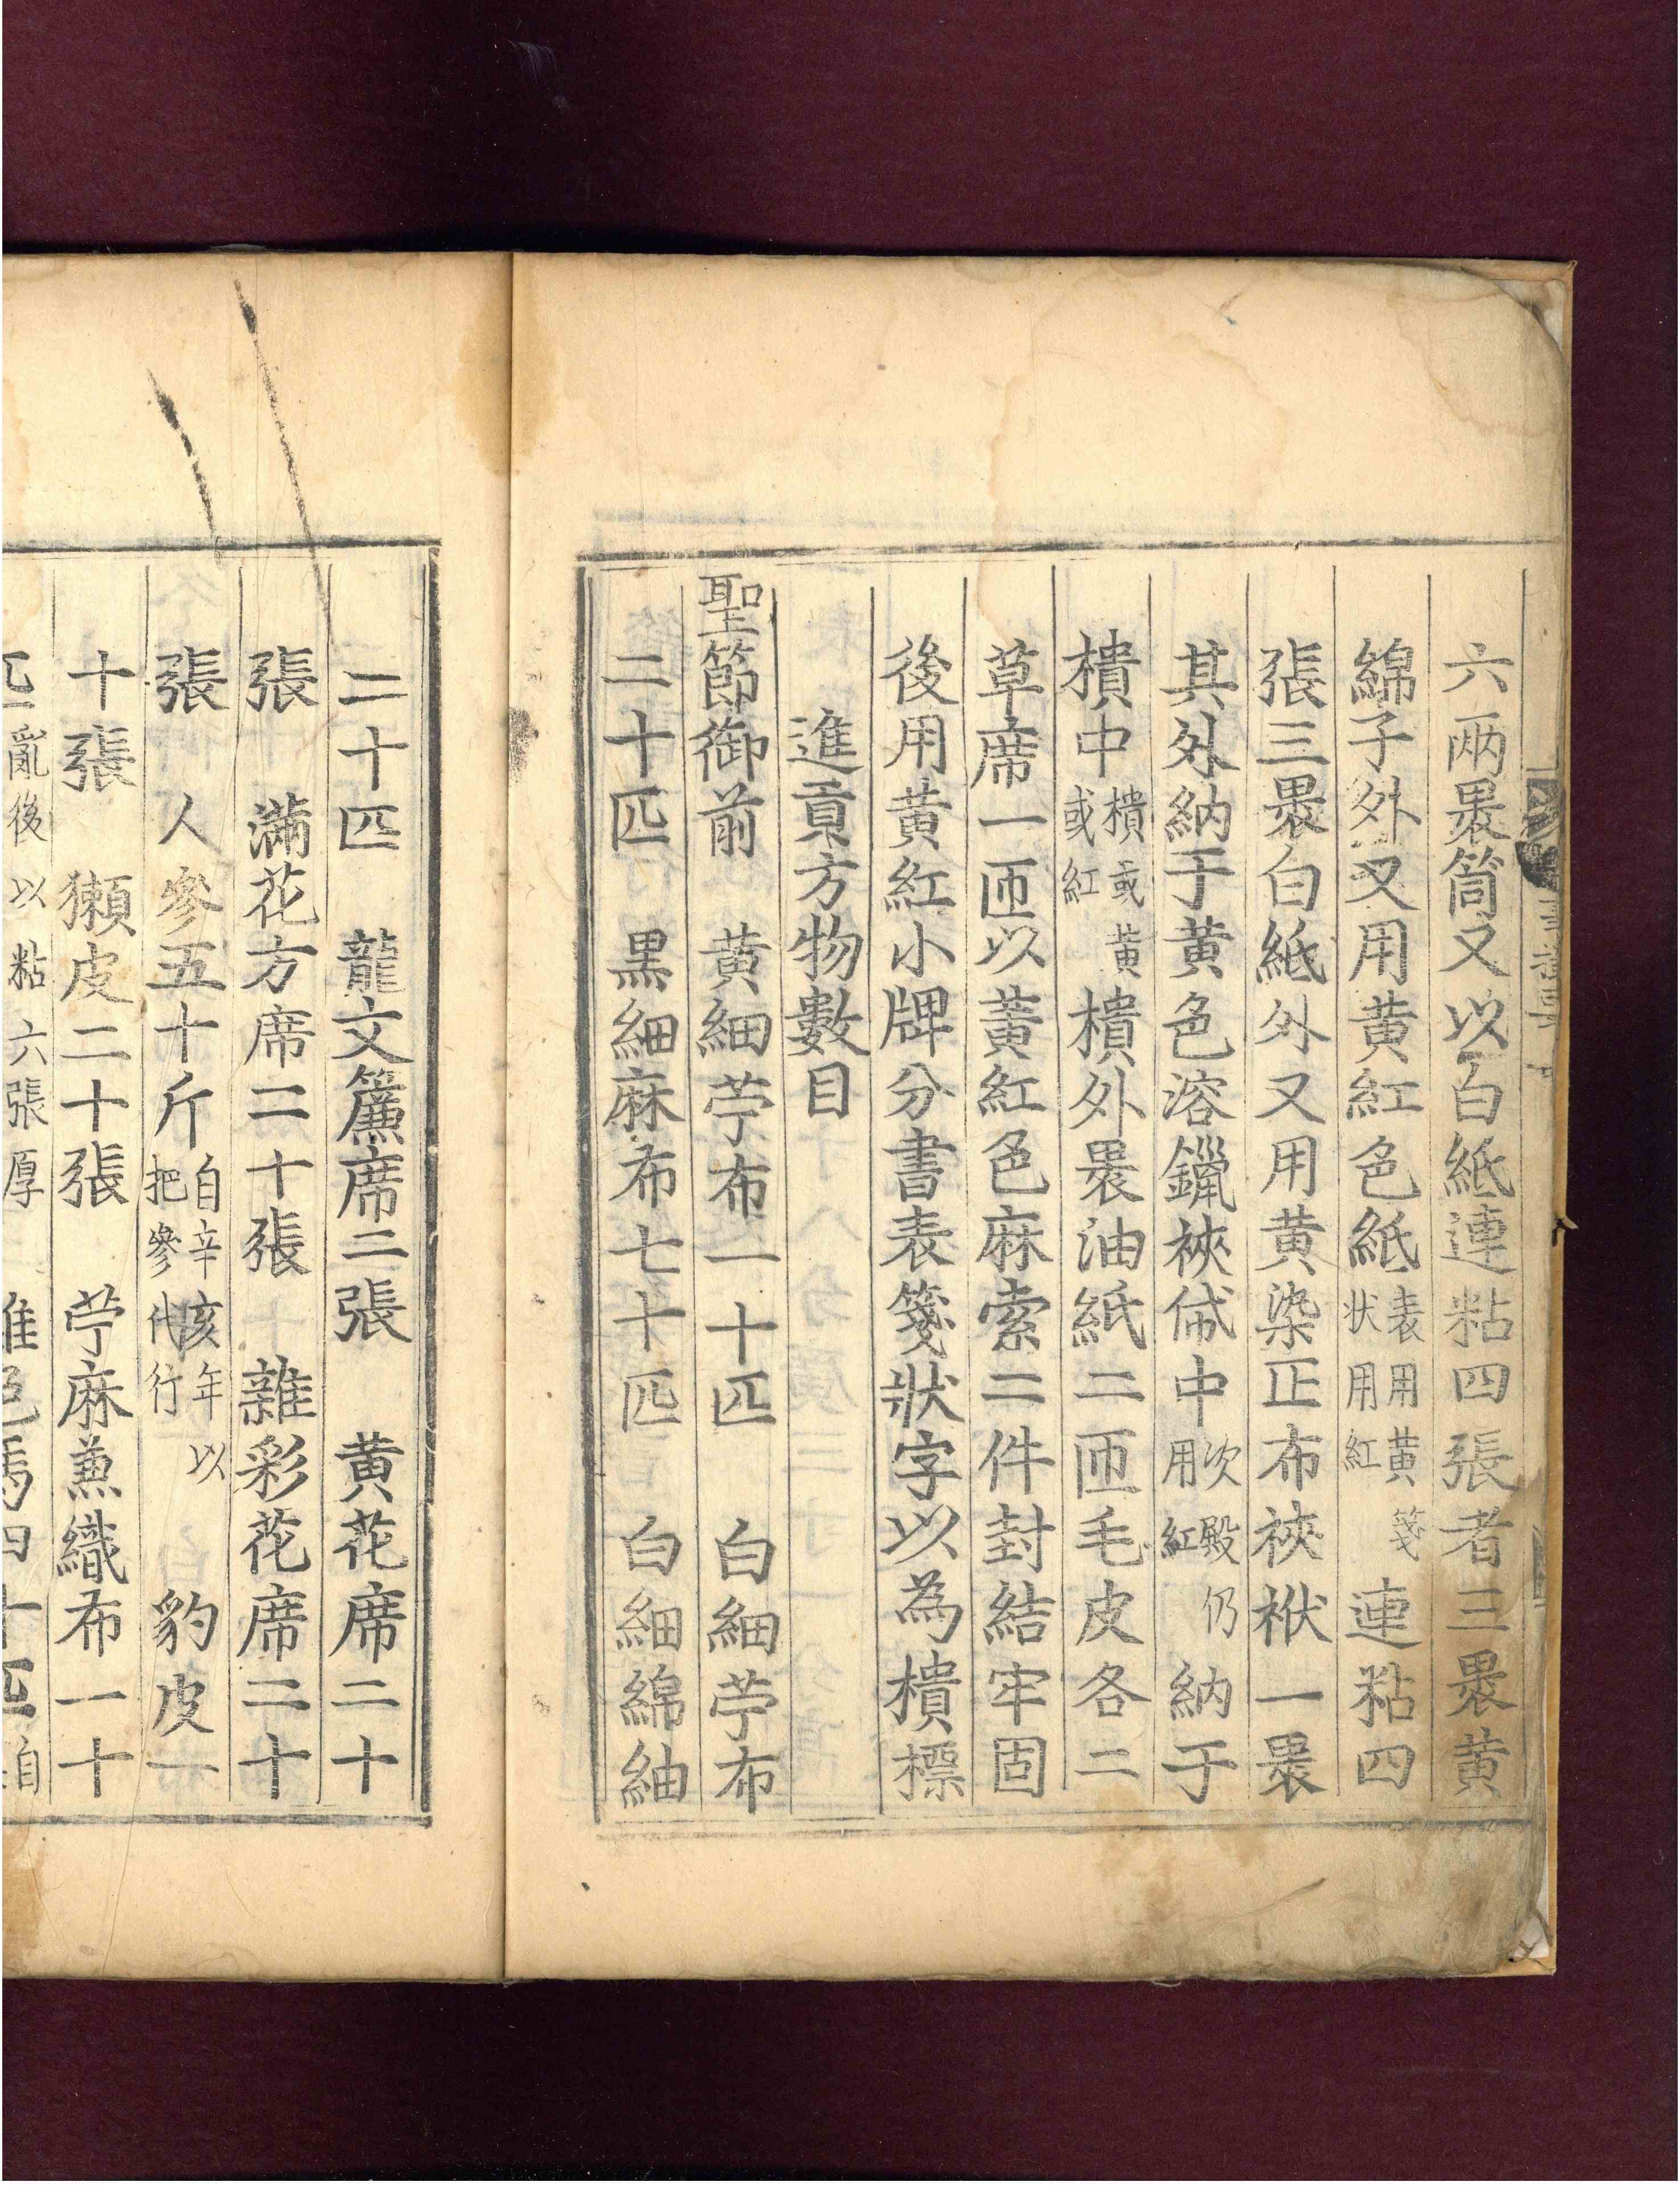 六兩褁筒又以白紙連粘四張者三褁黃
綿子外又用黃紅色紙表用黃箋狀用紅連粘四
張三褁白紙外又用黃染正布裌袱一褁
其外納于黃色溶鑞裌㡀中次殿仍用紅納于
樻中樻或黃或紅樻外褁油紙二匝毛皮各二
草席一匝以黃紅色麻索二件封結牢固
後用黃紅小牌分書表箋狀字以為樻標
進貢方物數目
聖節御前 黃細苧布一十匹 白細苧布
二十匹 黑細麻布七十匹 白細綿紬
二十匹 龍文簾席二張 黃花席二十
張 滿花方席二十張 雜彩花席二十
張 人參五十斤自辛亥年以把參代行 豹皮一
十張 獺皮二十張 苧麻兼織布一十
匹 亂後以粘六張厚 雜色馬四十匹自